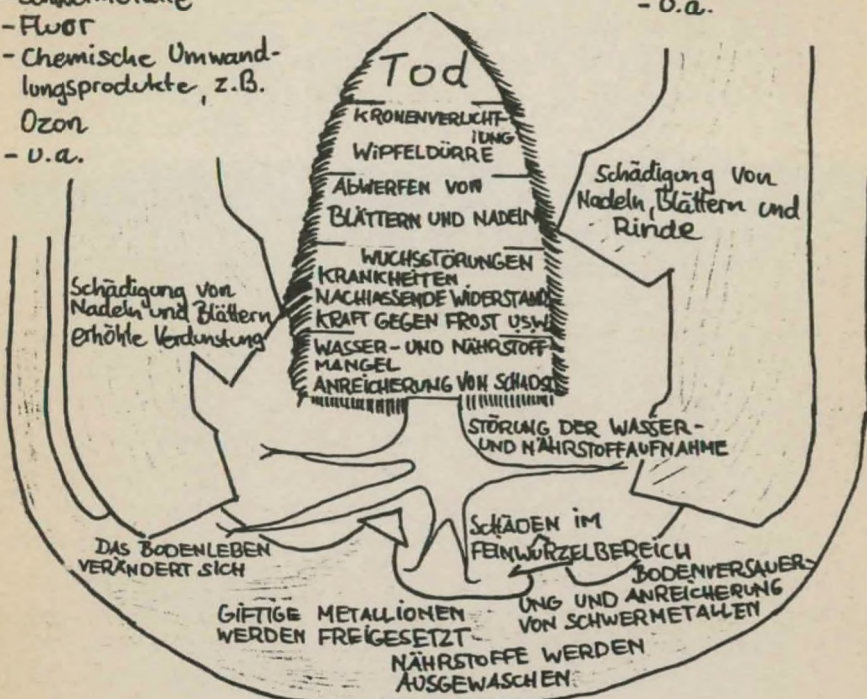 -Fluor
-Chemische Umwand-
lungsprodukte, z.B.
Ozon
-u.a.
-u.a.
Tod
KRONENVERLICHT-
IUNG
WIPFELDÜRRE
ABWERFEN VON
BLÄTTERN UND NADELN
WUCHSSTÖRUNGEN
KRANKHEITEN
NACHLASSENDE WIDERSTANDS
KRAFT GEGEN FROST USW.
WASSER- UND NÄHRSTOFF-
MANGEL
ANREICHERUNG VON SCHADST
Schädigung von
Nadeln und Blättern
erhöhte Verdunstung
Schädigung von
Nadeln, Blättern und
Rinde
STÖRUNG DER WASSER-
UND NÄHRSTOFFAUFNAHME
DAS BODENLEBEN
VERÄNDERT SICH
SCHÄDEN IM
FEINWURZELBEREICH
BODENVERSAUER-
UNG UND ANREICHERUNG
VON SCHWERMETALLEN
GIFTIGE METALLIONEN
WERDEN FREIGESETZT
NÄHRSTOFFE WERDEN
AUSGEWASCHEN